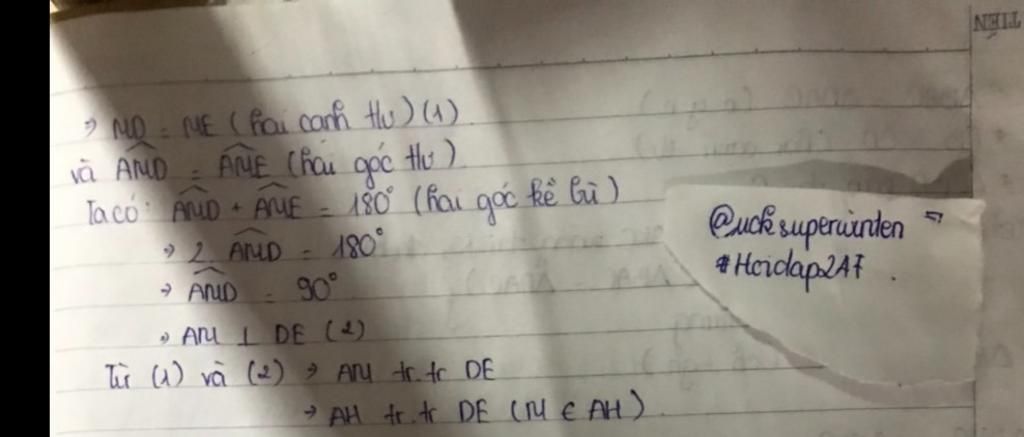 TIỆN
⇒ MD = ME (hai cạnh tlư) (1)
và AMD = AME (hai góc tlư)
Ta có: AMD + AME = 180° (hai góc kề bù)
⇒ 2 AMD = 180°
⇒ AMD = 90°
⇒ AM ⊥ DE (2)
Từ (1) và (2) ⇒ AM tr.tr DE
⇒ AH tr.tr DE (M ∈ AH)
#Hoidap247